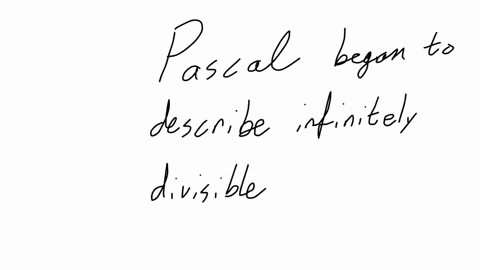 Pascal began to
describe infinitely
divisible